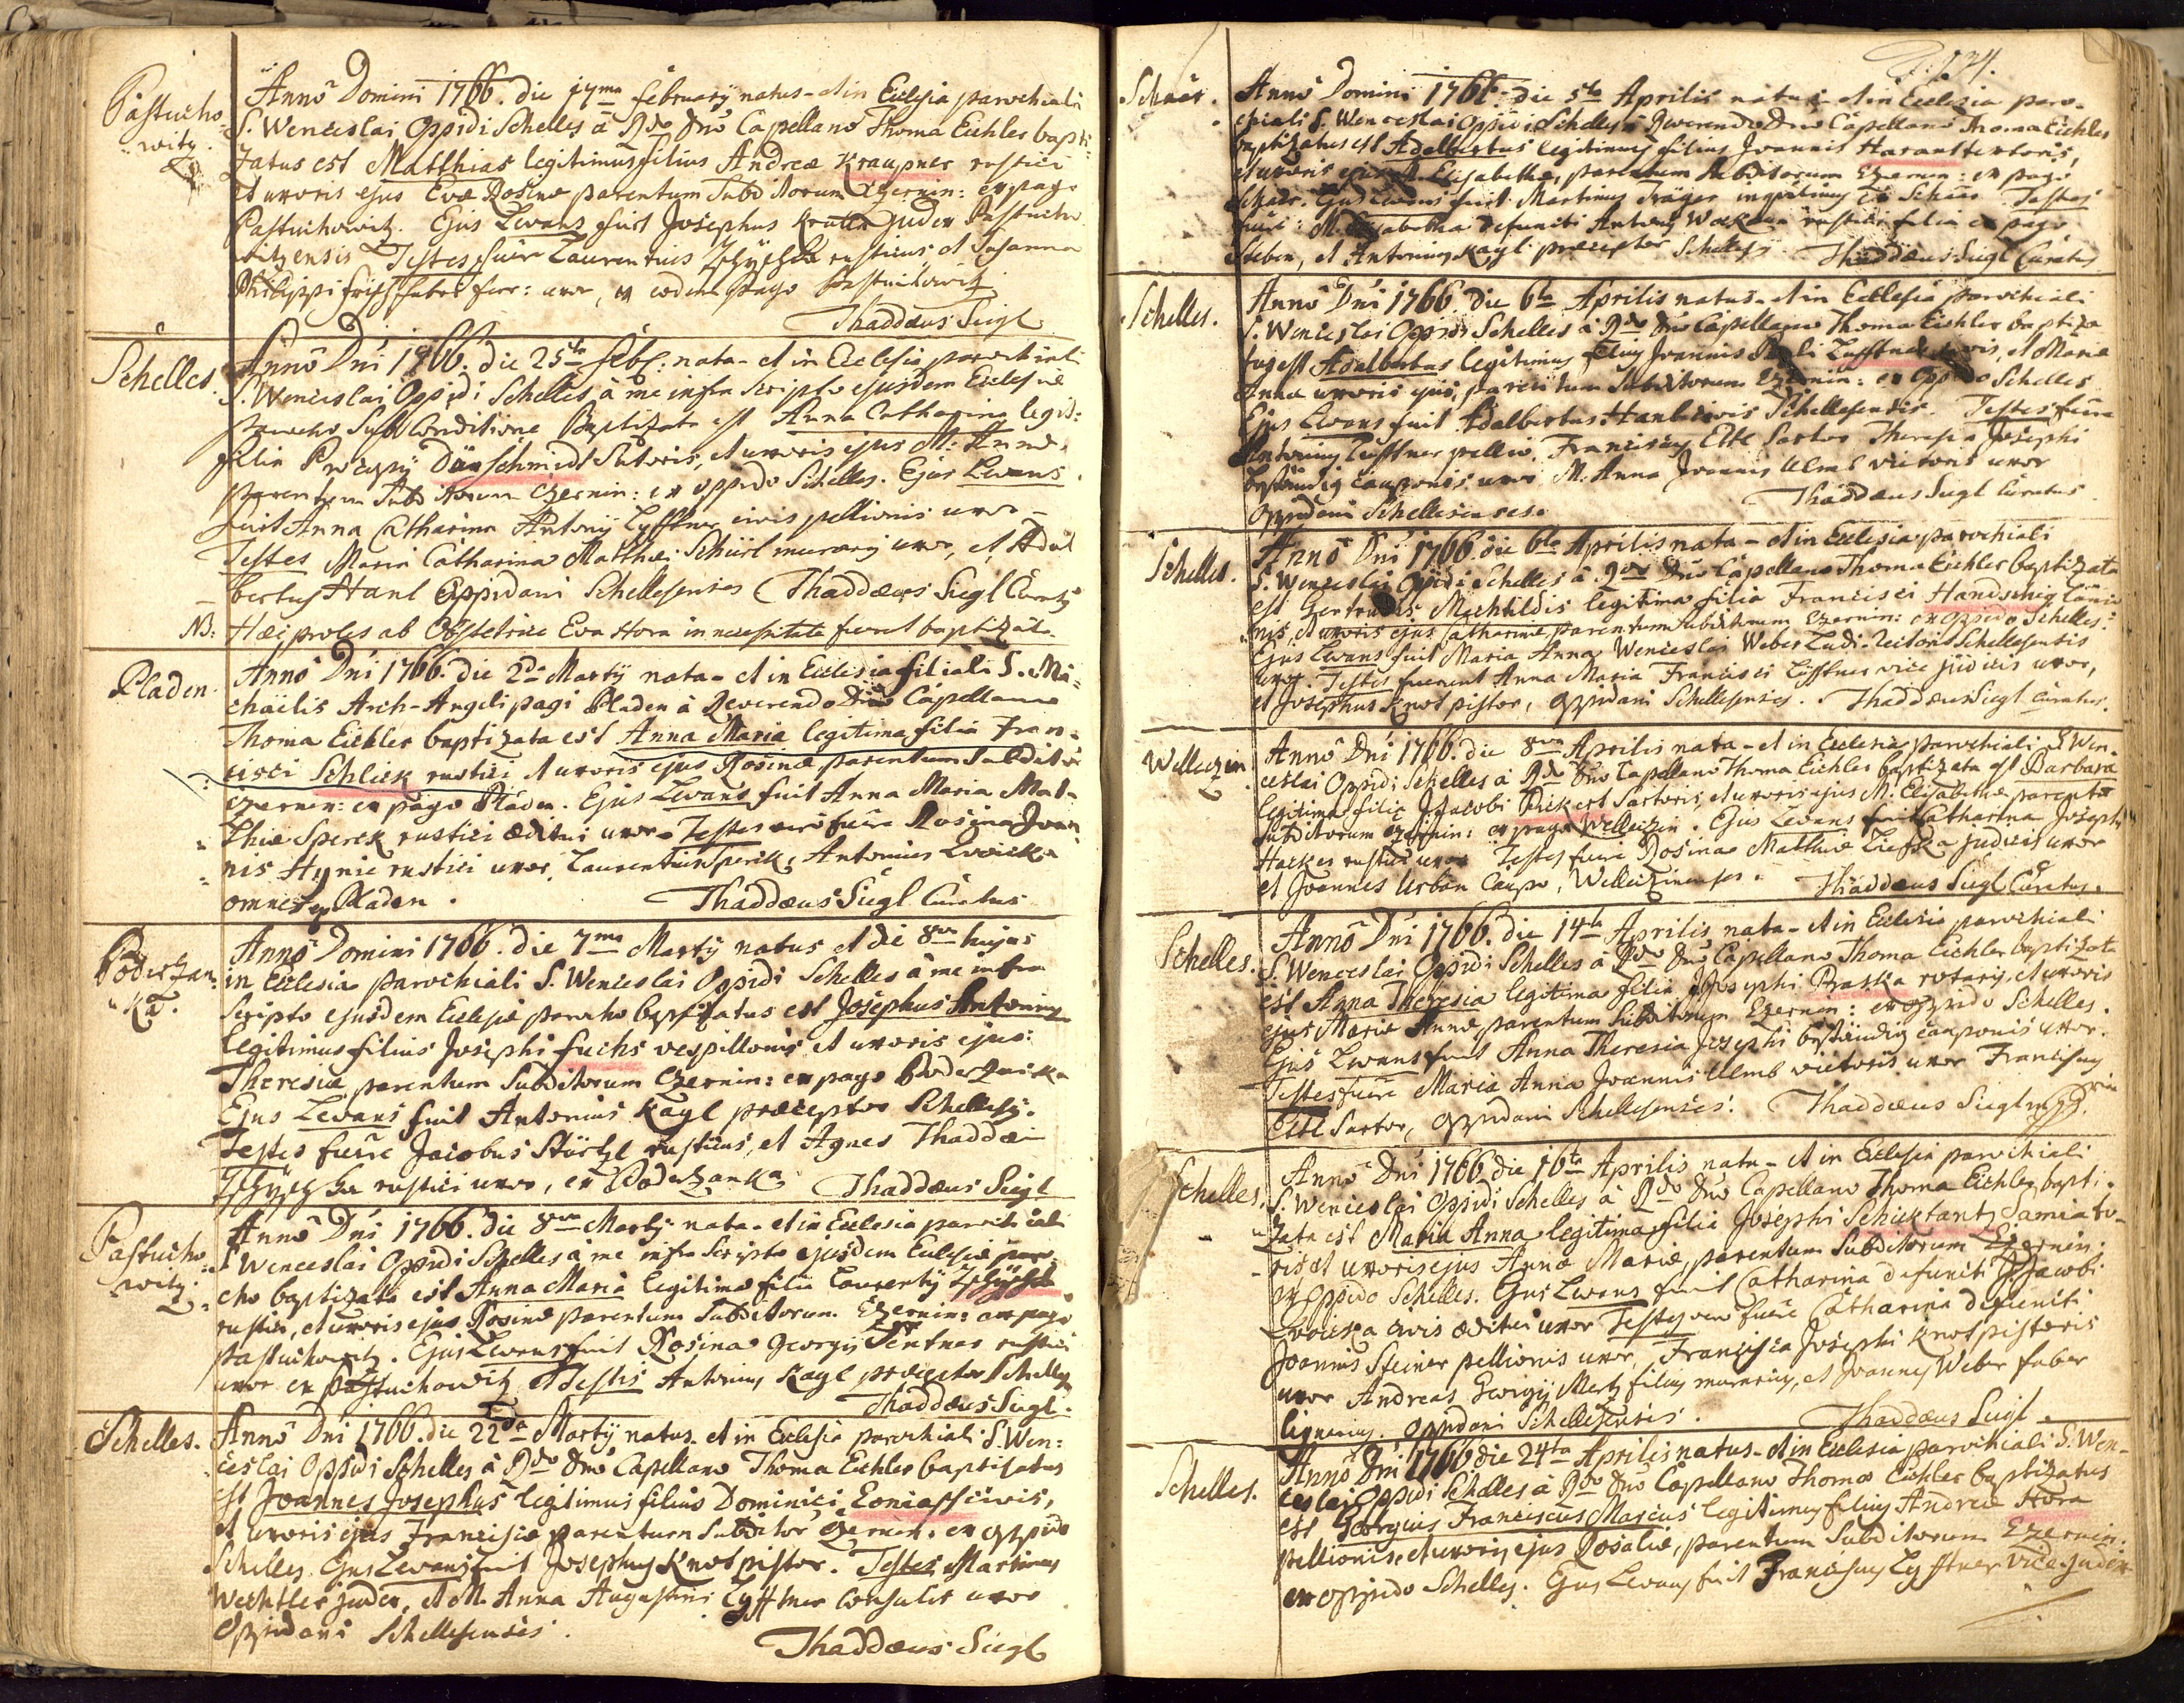 Pastucho=
witz.
Anno Domini 1766. die 17ma februarÿ natus - et in Ecclesia parochiali
S. Wenceslai Oppidi Schelles à Rdo Dno Capellano Thoma Eichler bapti=
zatus est Matthias legitimus filius Andreæ Kraupner rustici
et uxoris ejus Evæ Rosinæ parentum Subditorum Czernin: ex pago
Pastuchowitz. Ejus Levans fuit Josephus Krutta Judex Pastucho
witzensis Testes fuêre Laurentius rusticus, et Susanna
Philippi frisch fabri ferr: uxor, ex eodem pago Pastuchowitz
Thaddæus Siegl
Schelles.
Anno Dni 1766. die 25ta feb: nata - et in Ecclesia parochiali
S. Wenceslai Oppidi Schelles à me infra scripto ejusdem Ecclesiæ
parocho Sub Conditione Baptizata est Anna Catharina legit:
filia Procopÿ Dürschmidt Sutoris, et uxoris ejus M: Annæ,
parentum Subditorum Czernin: ex oppido Schelles. Ejus Levans
fuit Anna Catharina Antonÿ Lyfftner civis pellionis uxor -
Testes Maria Catharina Matthæi Schürl murarÿ uxor, et Adal
bertus Hanl Oppidani Schellesenses Thaddæus Siegl Curatus
NB: Hæc proles ab Obstetrice Eva Hora in necessitate fuerat baptizata.
Pladen.
Anno Dni 1766. die 2da Martÿ nata - et in Ecclesia filiali S. Mi=
chaëlis Arch-Angeli pagi Pladen à Reverendo Dno Capellano
Thoma Eichler baptizata est Anna Maria legitima filia Fran=
cisci Schlick rustici et uxoris ejus Rosinæ parentum Subditor
Czernin: ex pago Pladen. Ejus Levans fuit Anna Maria Mat=
thiæ Sperck rustici æditui uxor - Testes verò fuêre Rosina Joan
nis Hynie rustici uxor, Laurentius Sperk, Antonius Zwicka
omnes ex Pladen.
Thaddæus Siegl Curatus
Podersan=
ka.
Anno Domini 1766. die 7ma Martÿ natus et die 8va hujus
in Ecclesia parochiali S. Wenceslai Oppidi Schelles à me infra
scripto ejusdem Ecclesiæ parocho baptizatus est Josephus Antonius
legitimus filius Josephi fuchs vespillonis et uxoris ejus:
Theresiæ parentum Subditorum Czernin: ex pago
Ejus Levans fuit Antonius Kagl præceptor Schellesÿ.
Testes fuêre Jacobus Stürtzl rusticus, et Agnes Thaddæi
rustici uxor, ex Thaddæus Siegl
Pastucho=
witz.
Anno Dni 1766. die 8va Martÿ nata - et in Ecclesia parochiali
S Wenceslai Oppidi Schelles à me infra scripto ejusdem Ecclesiæ paro
cho baptizata est Anna Maria legitima filia Laurentÿ
rustici, et uxoris ejus Rosinæ parentum Subditorum Czernin: ex pago
Pastuchowitz. Ejus Levans fuit Rosina Georgÿ Pentner rustici
uxor ex Pastuchowitz Testis Antonius Kagl præceptor Schellesÿ
Thaddæus Siegl.
Schelles.
Anno Dni 1766. die 22da Martÿ natus - et in Ecclesia parochiali S. Wen=
ceslai Oppidi Schelles à Rdo Dno Capellano Thoma Eichler baptizatus
est Joannes Josephus legitimus filius Dominici civis,
et uxoris ejus Franciscæ parentum Subditor Czernin: ex oppido
Schelles. Ejus Levans fuit Josephus Knot pistor. Testes Martinus
Wechtler judex, et M. Anna Augustini Lyfftner Consulis uxor
Oppidani Schellesenses.
Thaddæus Siegl
134.
Schaar.
Anno Domini 1766. die 5ta Aprilis natus - et in Ecclesia paro=
chiali S. Wenceslai Oppidi Schelles à Reverendo Dno Capellano Thoma Eichler
baptizatus est Adalbertus legitimus filius Joannis Harant textoris,
et uxoris ejus M. Elisabethæ, parentum Subditorum Czernin: ex pago
Schaar. Ejus Levans fuit Martinus Träger inquilinus ex Schaar Testes
fuêre: M. Elisabetha defuncti Antonÿ rustici filia ex pago
Steben, et Antonius Kagl præceptor Schellesÿ. Thaddæus Siegl Curatus
Schelles.
Anno Dni 1766. die 6ta Aprilis natus - et in Ecclesia parochiali
S. Wenceslai Oppidi Schelles à Rdo Dno Capellano Thoma Eichler baptiza
tus est Adalbertus legitimus filius Joannis et Mariæ
Annæ uxoris ejus, parentum Subditorum Czernin: ex Oppido Schelles
Ejus Levans fuit Adalbertus Hanl civis Schellesensis. Testes fuêre
Antonius Lüfftner pellio, Franciscus Ettl Sartor Theresia Josephi
Bständig cauponis uxor M. Anna Joannis Ulmb victoris uxor
Oppidani Schellesenses. Thaddæus Siegl Curatus
Schelles.
Anno Dni 1766. die 6ta Aprilis nata - et in Ecclesia parochiali
S. Wenceslai Oppidi Schelles à Rdo Dno Capellano Thoma Eichler baptizata
est Gertrudis Mechtildis legitima filia Francisci Handschig lanio
nis, et uxoris ejus Catharinæ parentum Subditorum Czernin: ex Oppido Schelles.
Ejus Levans fuit Maria Anna Wenceslai Weber Ludi-rectoris Schellesensis
uxor. Testes fuerunt Anna Maria Francisci Lüfftner vice judicis uxor,
et Josephus Knot pistor, Oppidani Schellesenses. Thaddæus Siegl Curatus.
Welleczin
Anno Dni 1766. die 8va Aprilis nata - et in Ecclesia parochiali S Wen=
ceslai Oppidi Schelles à Rdo Dno Capellano Thoma Eichler baptizata est Barbara
legitima filia Jacobi Pickert Sartoris, et uxoris ejus M. Elisabethæ parentum
Subditorum Czernin: ex pago Welleczin. Ejus Levans fuit Catharina Josephi
Hacker rustici uxor Testes fuêre Rosina Matthiæ judicis uxor
et Joannes Urban Caupo, Welleczinenses. Thaddæus Siegl Curatus.
Schelles.
Anno Dni 1766. die 14ta Aprilis nata - et in Ecclesia parochiali
S. Wenceslai Oppidi Schelles à Rdo Dno Capellano Thoma Eichler baptizata
est Anna Theresia legitima filia Josephi Praska rotarÿ, et uxoris
ejus Mariæ Annæ parentum Subditorum Czernin: ex oppido Schelles.
Ejus Levans fuit Anna Theresia Josephi Bständig cauponis uxor.
Testes fuêre Maria Anna Joannis Ulmb victoris uxor Franciscus
Ettl Sartor, Oppidani Schellesenses. Thaddæus Siegl mpp
Schelles.
Anno Dni 1766 die 16ta Aprilis nata - et in Ecclesia parochiali
S. Wenceslai Oppidi Schelles à Rdo Dno Capellano Thoma Eichler bapti=
zata est Maria Anna legitima filia Josephi Schicktantz Samiato=
ris et uxoris ejus Annæ Mariæ, parentum Subditorum Czernin:
ex Oppido Schelles. Ejus Levans fuit Catharina defuncti Jacobi
Zwicka civis æditui uxor Testes verò fuêre Catharina defuncti
Joannis Steiner pellionis uxor, Francisca Josephi Knot pistoris
uxor Andreas Georgÿ Mertz filius murarius, et Joannes Weber faber
lignarius. Oppidani Schellesenses. Thaddæus Siegl.
Schelles.
Anno Dni 1766 die 24ta Aprilis natus - et in Ecclesia parochiali S. Wen=
ceslai Oppidi Schelles à Rdo Dno Capellano Thoma Eichler baptizatus
est Georgius Franciscus Marcus legitimus filius Andreæ Hora
pellionis, et uxoris ejus Rosaliæ, parentum Subditorum Czernin:
ex oppido Schelles. Ejus Levans fuit Franciscus Lyfftner vice judex